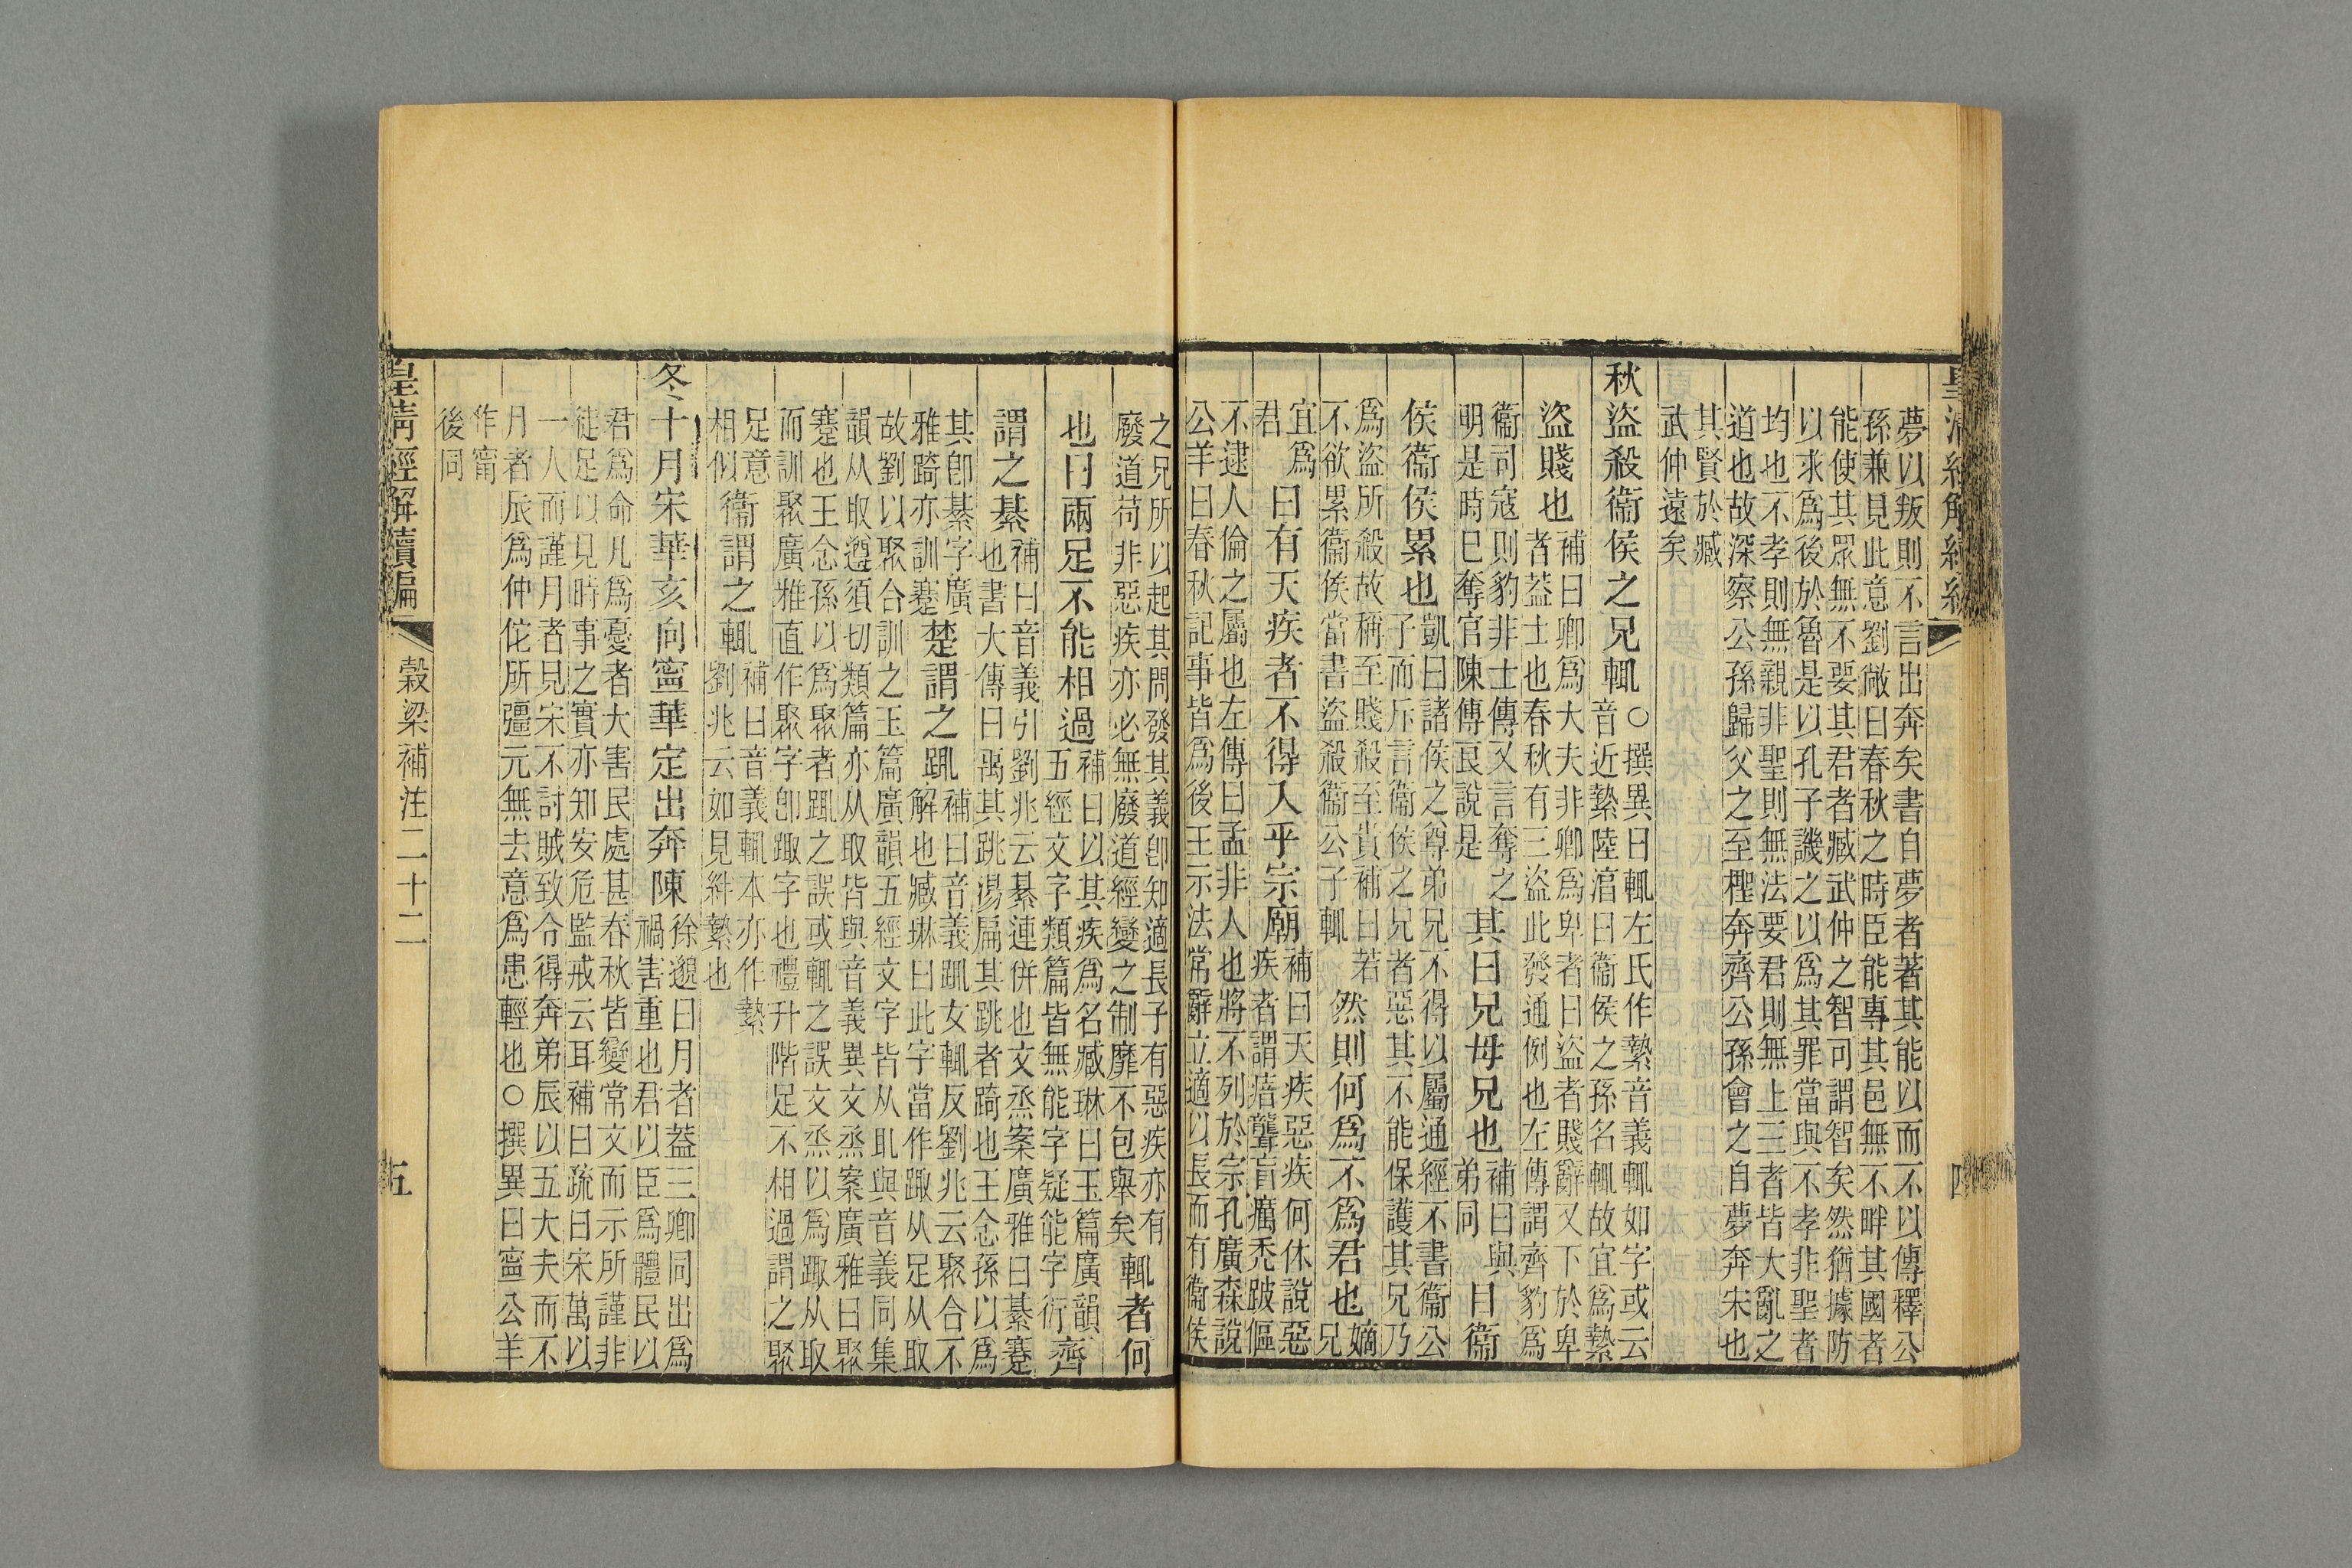 夢以叛則不言出奔矣書自夢者著其能以而不以傳釋公
孫兼見此意劉敞曰春秋之時臣能專其邑無不畔其國者
能使其眾無不要其君者臧武仲之智可謂智矣然猶據防
以求為後於魯是以孔子譏之以為其罪當與不孝非聖者
均也不孝則無親非聖則無法要君則無上三者皆大亂之
道也故深察公孫歸父之至檉奔齊公孫會之自夢奔宋也
其賢於臧
武仲遠矣
秋盜殺衞侯之兄輒
○撰異曰輒左氏作縶音義輒如字或云
音近縶陸湻曰衞侯之孫名輒故宜為縶
盜賤也
補曰卿為大夫非卿為卑者曰盜者賤辭又下於卑
者葢士也春秋有三盜此發通例也左傳謂齊豹為
衞司寇則豹非士傳又言奪之
明是時已奪官陳傅良說是
其曰兄母兄也
補曰與
弟同
目衞
侯衞侯累也
凱曰諸侯之尊弟兄不得以屬通經不書衞公
子而斥言衞侯之兄者惡其不能保護其兄乃
為盜所殺故稱至賤殺至貴補曰若
不欲累衞侯當書盜殺衞公子輒
然則何為不為君也
嫡
兄
宜為
君
曰有天疾者不得入乎宗廟
補曰天疾惡疾何休說惡
疾者謂瘖聾盲癘禿跛傴
不逮人倫之屬也左傳曰孟非人也將不列於宗孔廣森說
公羊曰春秋記事皆為後王示法常辭立適以長而有衞侯
之兄所以起其問發其義卽知適長子有惡疾亦有
廢道苟非惡疾亦必無廢道經變之制靡不包舉矣
輒者何
也曰兩足不能相過
補曰以其疾為名臧琳曰玉篇廣韻
五經文字類篇皆無能字疑能字衍
齊
謂之綦
補曰音義引劉兆云綦連併也文烝案廣雅曰綦蹇
也書大傳曰禹其跳湯扁其跳者踦也王念孫以為
其卽綦字廣
雅踦亦訓蹇
楚謂之踂
補曰音義踂女輒反劉兆云聚合不
解也臧琳曰此字當作踙从足从取
故劉以聚合訓之玉篇廣韻五經文字皆从耴與音義同集
韻从取遵須切類篇亦从取皆與音義異文烝案廣雅曰聚
蹇也王念孫以為聚者踂之誤或輒之誤文烝以為踙从取
而訓聚廣雅直作聚字卽踙字也禮升階足不相過謂之聚
足意
相似
衞謂之輒
補曰音義輒本亦作縶
劉兆云如見絆縶也
冬十月宋華亥向寧華定出奔陳
徐邈曰月者葢三卿同出為
禍害重也君以臣為體民以
君為命凡為憂者大害民處甚春秋皆變常文而示所謹非
徒足以見時事之實亦知安危監戒云耳補曰疏曰宋萬以
一人而謹月者見宋不討賊致令得奔弟辰以五大夫而不
月者辰為仲佗所彊元無去意為患輕也○撰異曰寧公羊
作甯
後同
皇清經解續編
穀梁補注二十二
五